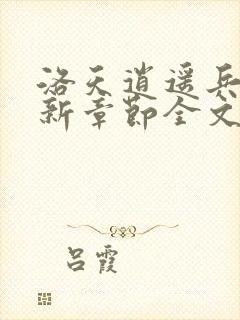 洛天逍遥兵
新章节全文
吕霞